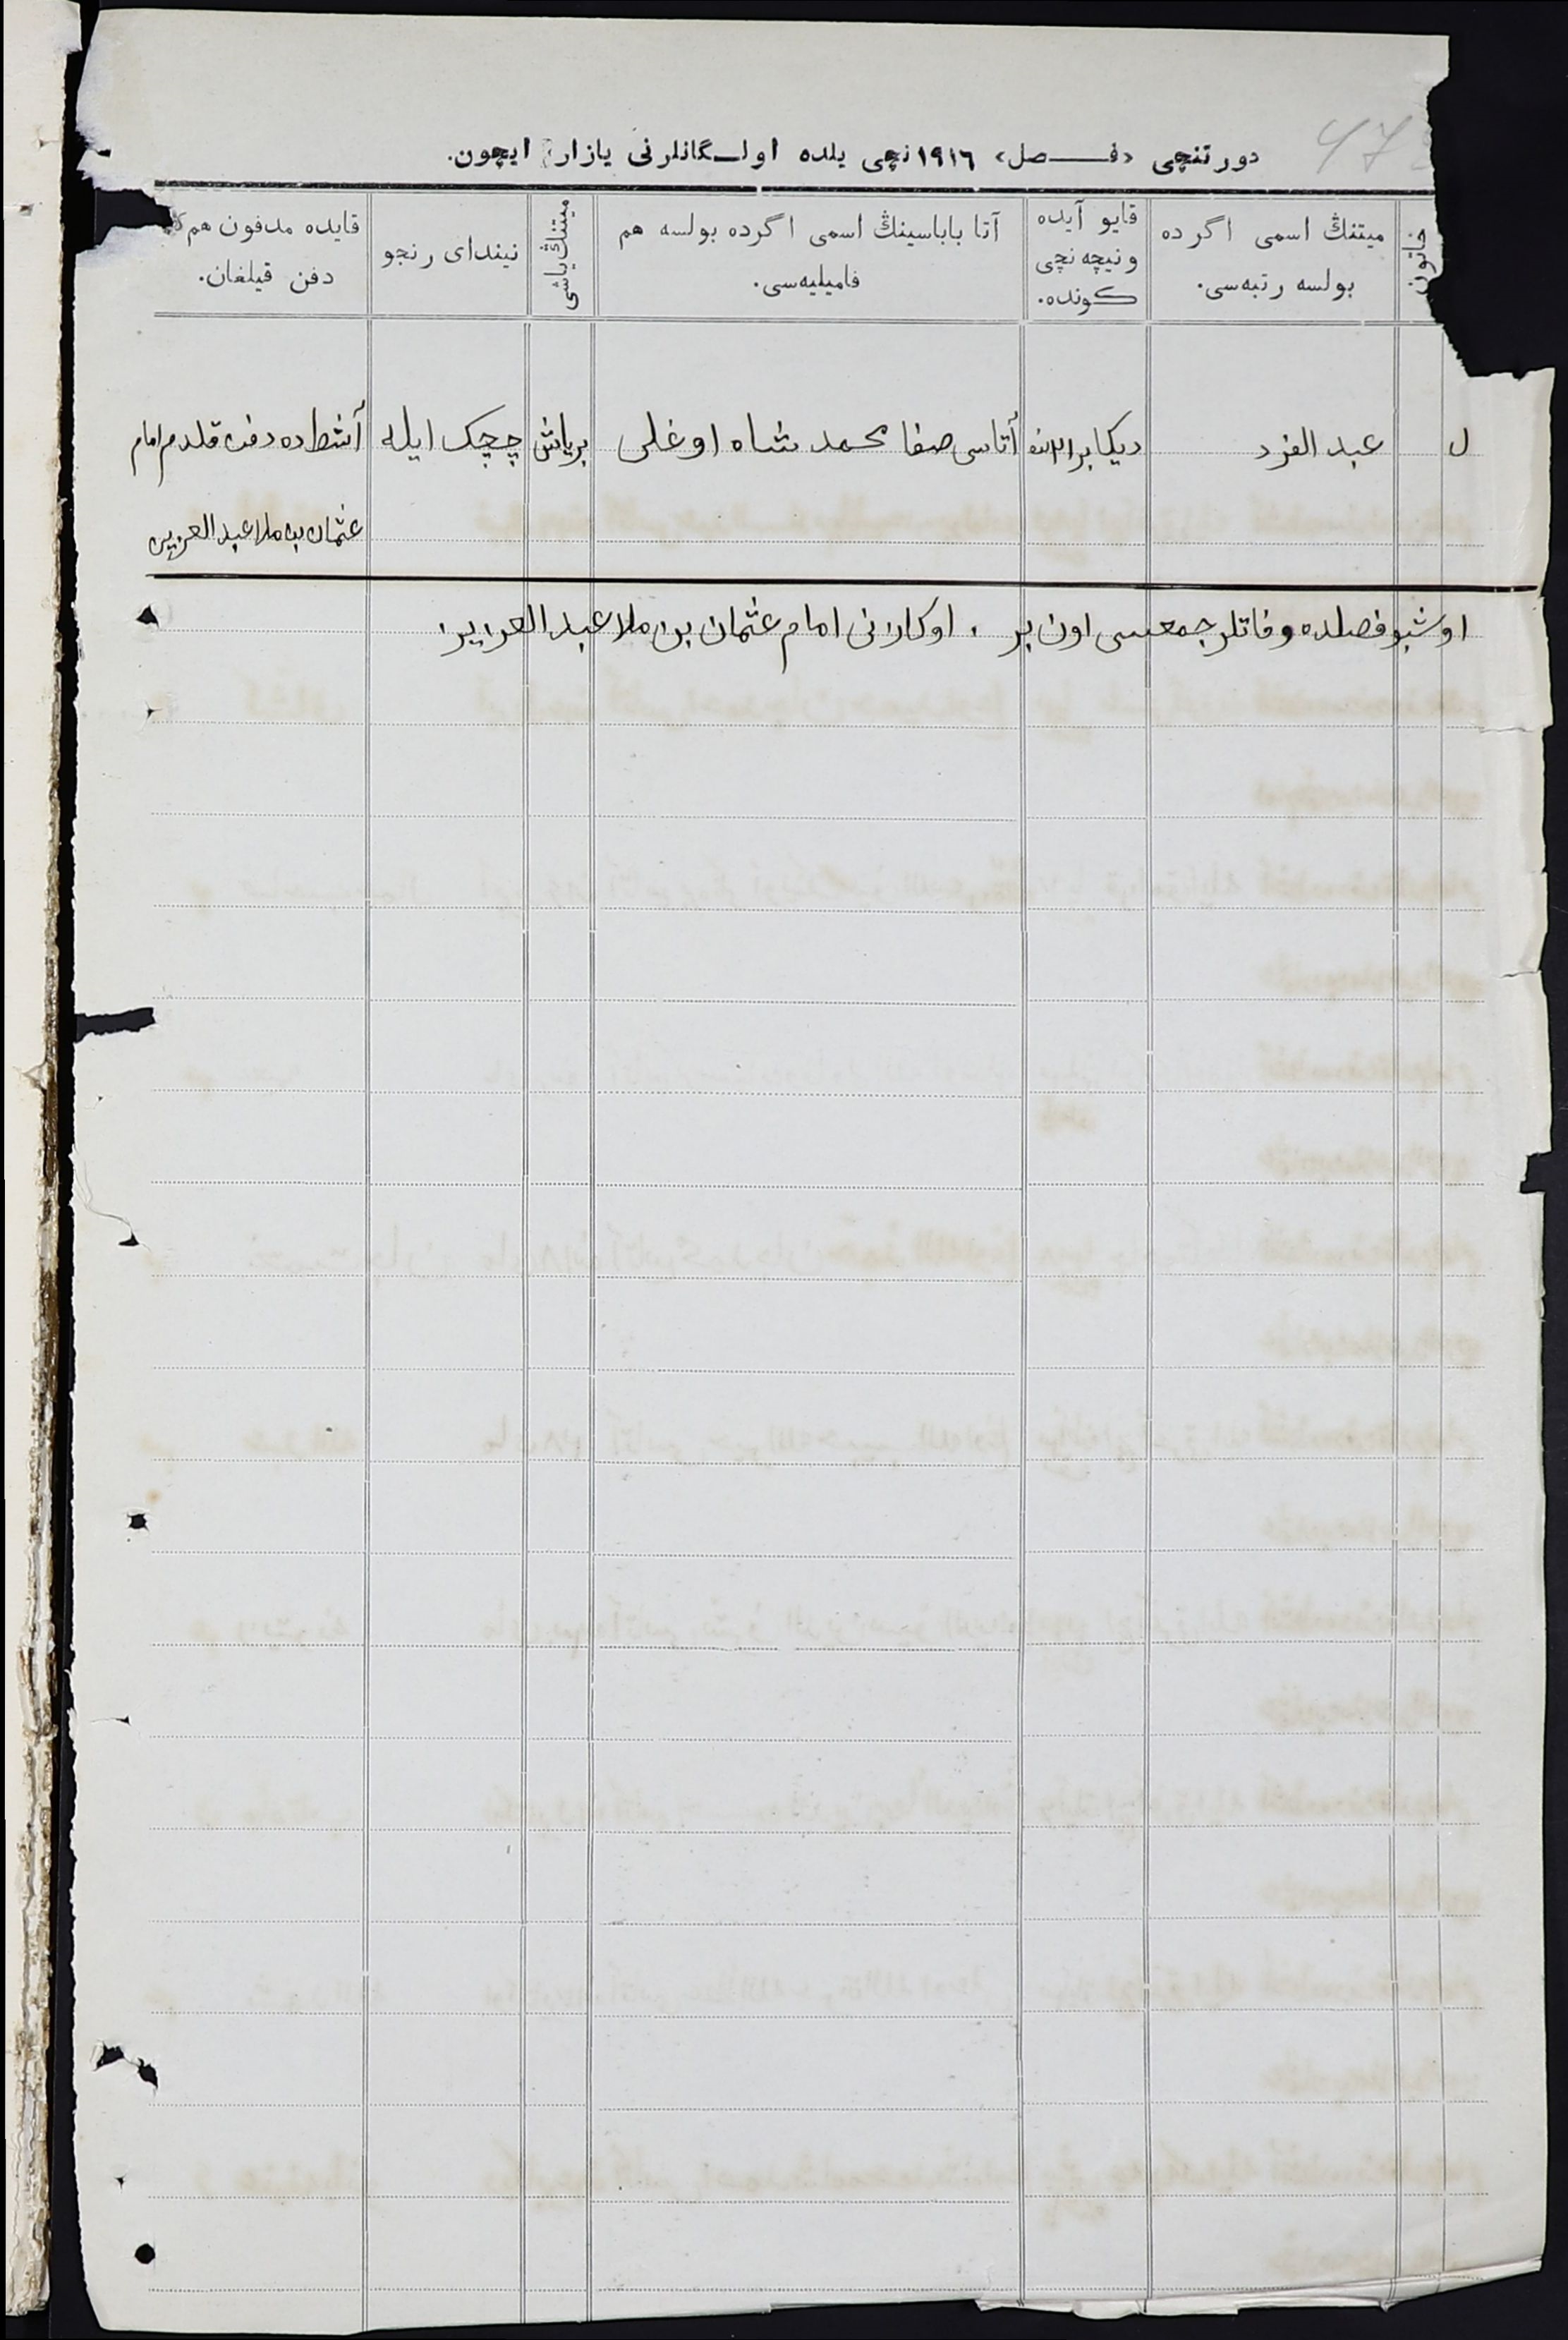 دورتنچی «فصل» ١٩١٦نچی یلده اولگانلرنی یازار ایچون.
خاتون
میتنڭ اسمی اگرده بولسه رتبه‌سی.
قایو آیده ونیچه نچی کونده.
آتا باباسینڭ اسمی اگرده بولسه هم فامیلیه‌سی.
میتنڭ یاشی
نیندای رنجو
قایده مدفون هم دفن قیلغان.
عبد الفرد دیکابر آتاسی صفا محمد شاه اوغلی بریاش چچک ایله دفن قلدم امام
عثمان بن ملا عبد العزیز
اوشبو فصلده وفاتلر جمعسی اون بر . اوکازنی امام عثمان بن ملا عبد العزیز